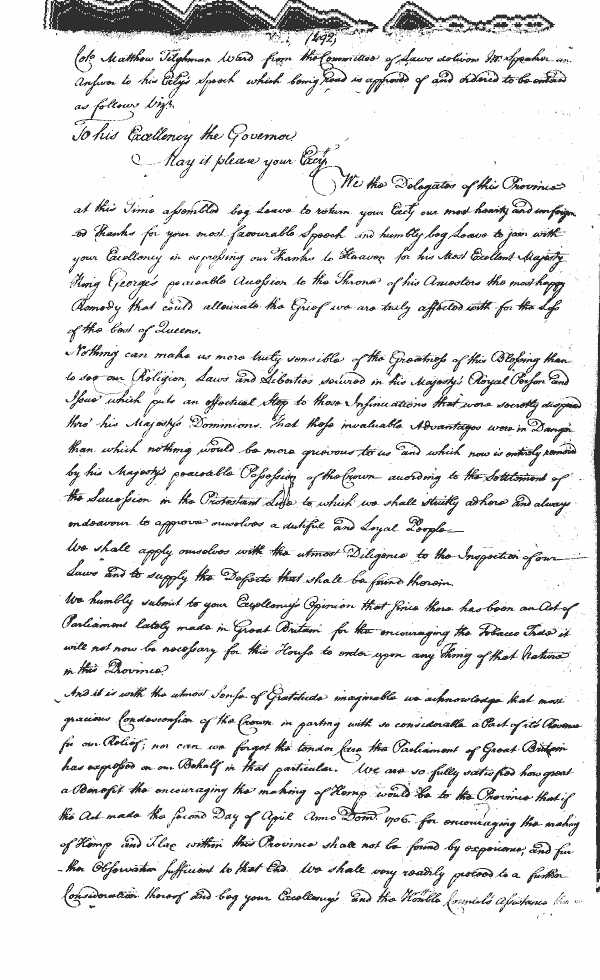 (492)
Colo Matthew Tilghman Ward from the Committee of Laws delivers Mr Speaker an
Answer to his Excys Speech which being read is approved of and ordered to be entred
as follows vizt.
To his Excellency the Governor
May it please your Excy
We the Delegates of this Province
at this Time assembled beg Leave to return your Excy our most hearty and unfeign
ed Thanks for your most favourable Speech and humbly beg Leave to join with
your Excellency in expressing our Thanks to Heaven for his Most Excellent Majesty
King George's peaceable Accession to the Throne of his Ancestors the most happy
Remedy that could alleviate the Grief we are truly affected with for the Loss
of the best of Queens.
Nothing can make us more truly sensible of the Greatness of this Blessing than
to see our Religion, Laws and Liberties secured in his Majesty's Royal Person and
Issue which puts an effectual Stop to those Insinuations that were secretly dispersed
thro' his Majesty's Dominions. That those invaluable Advantages were in Danger
than which nothing would be more grievous to us and which now is entirely removed
by his Majesty's peaceable Possession of the Crown according to the Settlement of
the Succession in the Protestant Line to which we shall strictly adhere and always
endeavour to approve ourselves a dutiful and Loyal People
We shall apply ourselves with the utmost Diligence to the Inspection of our
Laws and to supply the Defects that shall be found therein.
We humbly submit to your Excellency's Opinion that since there has been an Act of
Parliament lately made in Great Britain for the encouraging the Tobacco Trade it
will not now be necessary for this House to enter upon any thing of that Nature
in this Province
And it is with the utmost Sense of Gratitude imaginable we acknowledge that most
gracious Condescension of the Crown in parting with so considerable a Part of its Revenue
for our Relief; nor can we forget the tender Care the Parliament of Great Britain
has expressed on our Behalf in that particular. We are so fully satisfied how great
a Benefit the encouraging the making of Hemp would be to the Province that if
the Act made the second Day of April Anno Domi 1706 for encouraging the making
of Hemp and Flax within this Province shall not be found by experience, and fur
ther Observation sufficient to that End. We shall very readily proceed to a further
Consideration thereof and beg your Excellency's and the Honble Council's Assistance